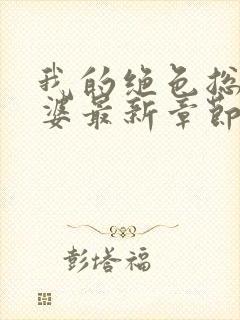 我的绝色总
婆最新章节
彭塔福